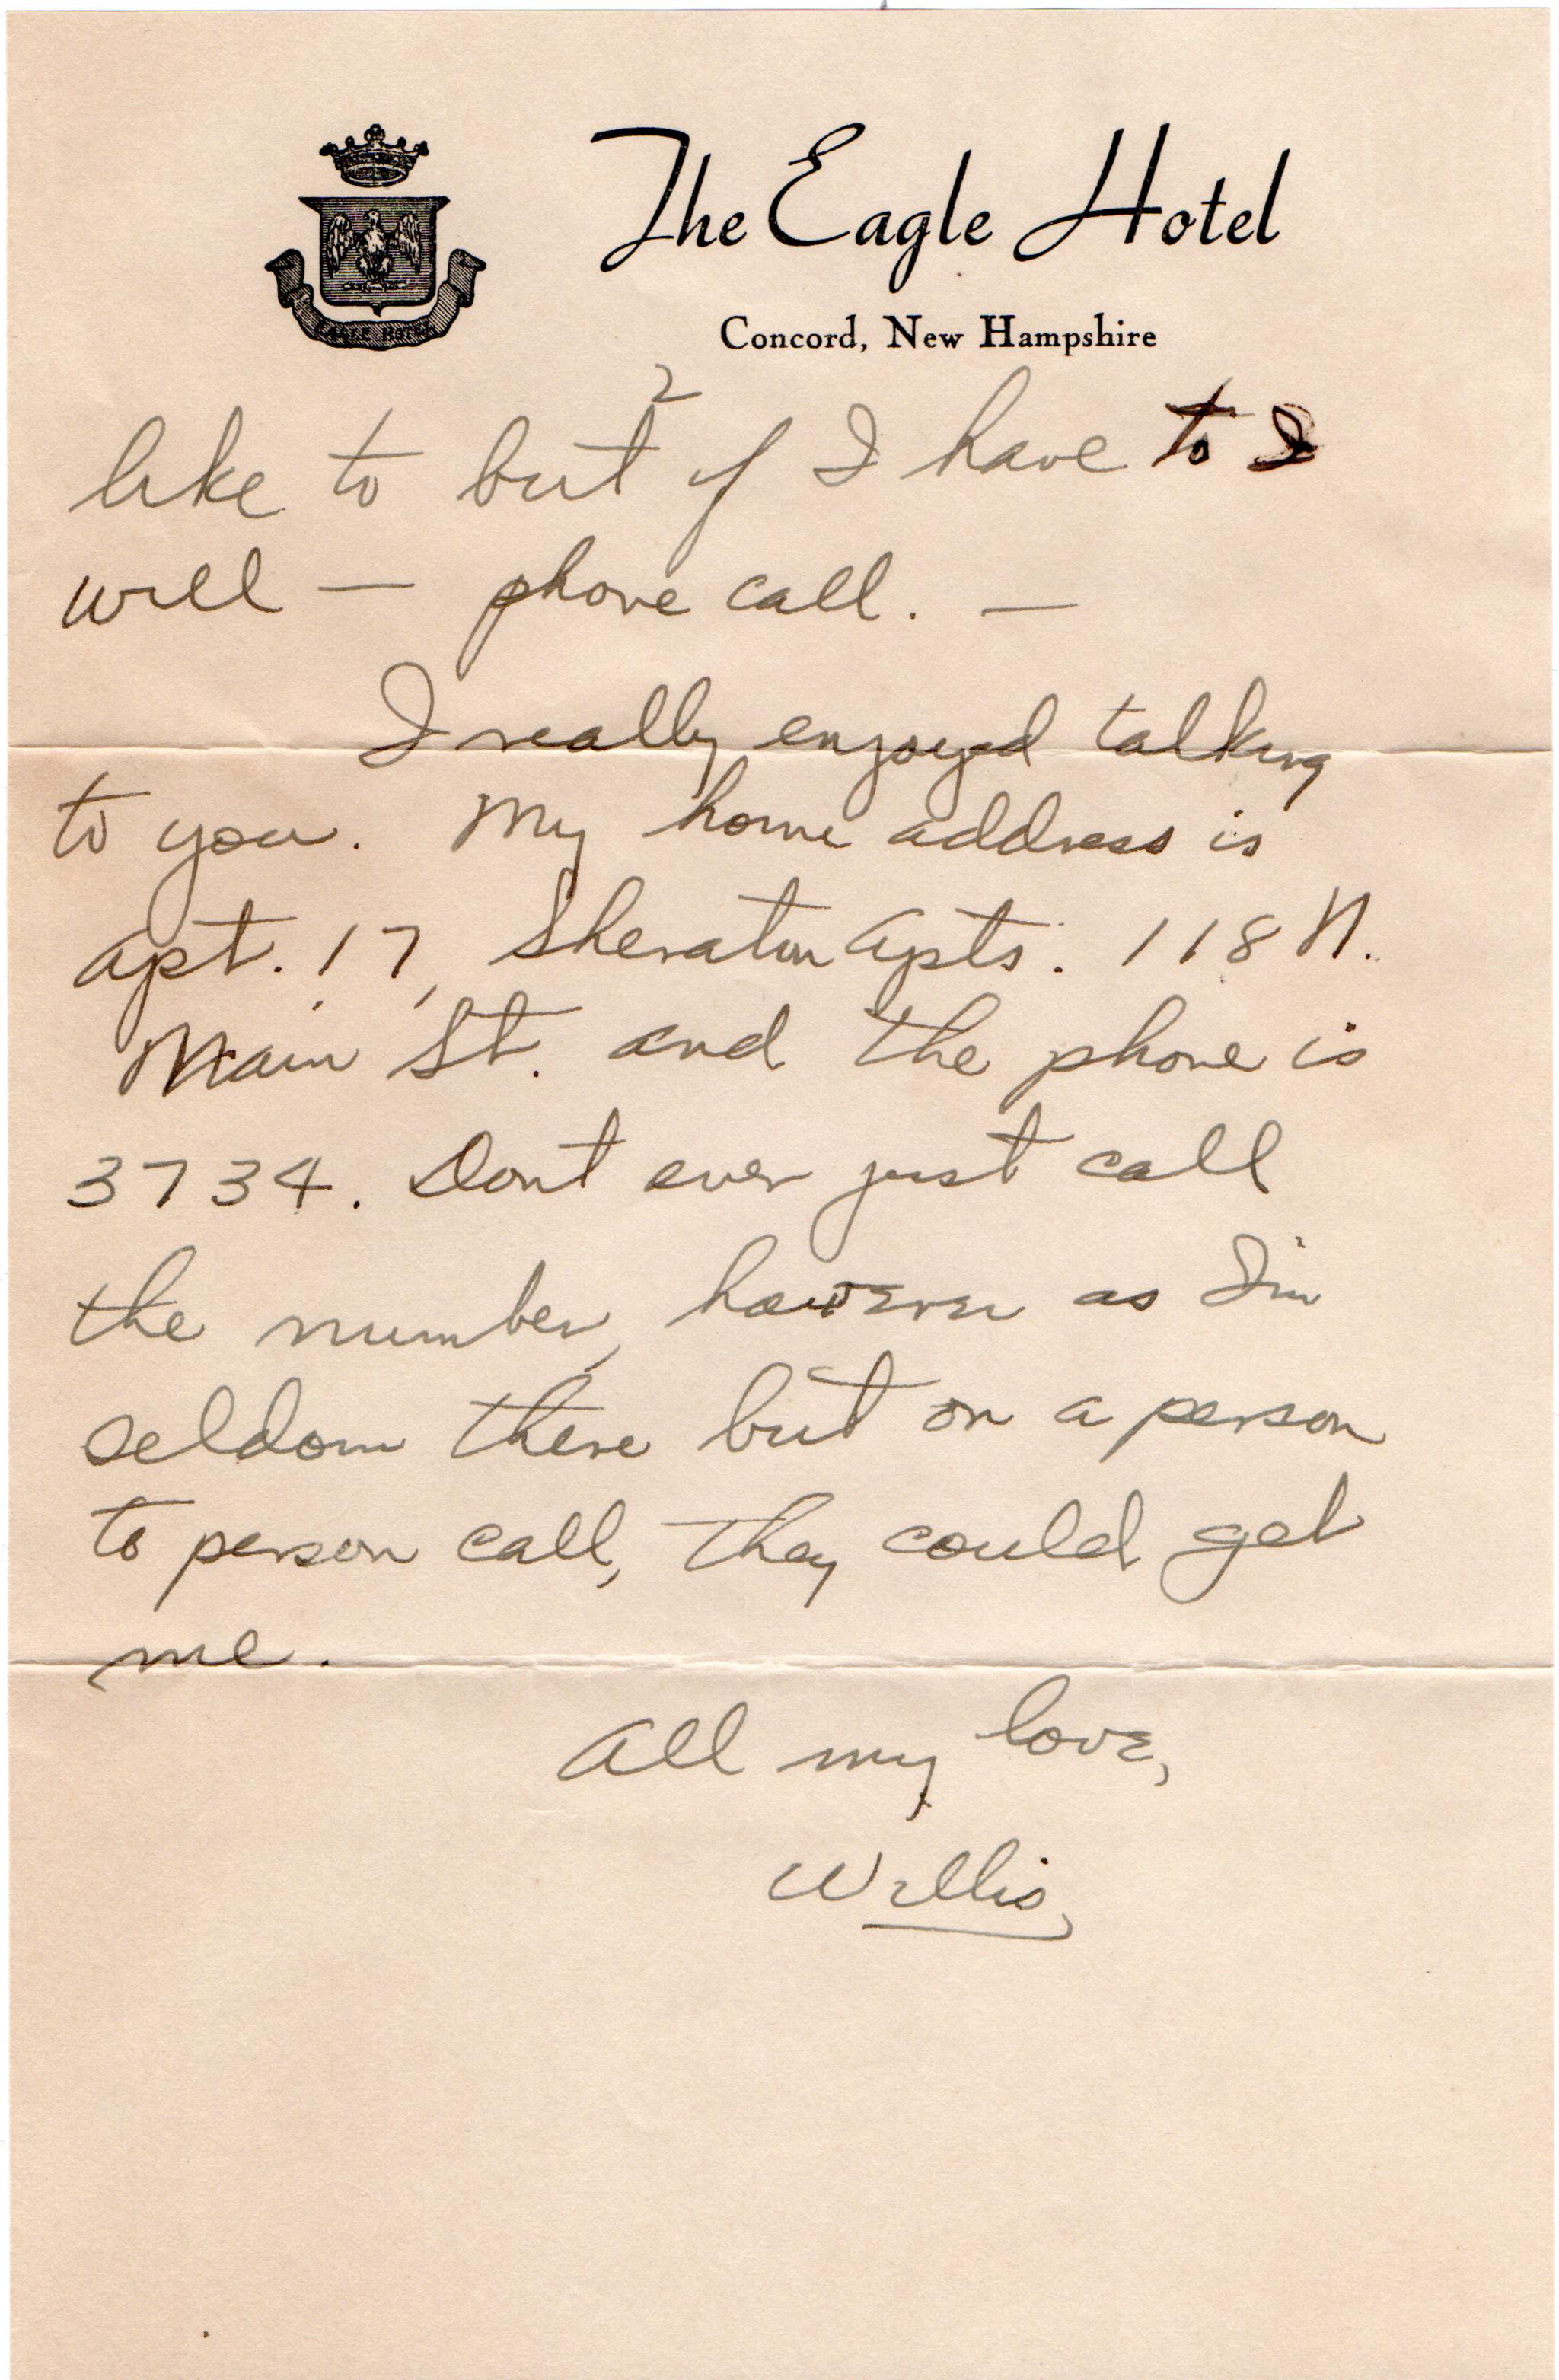 The Eagle Hotel
Concord, New Hampshire
2
like to but if I have to I
will — phone call. —
I really enjoyed talking
to you. My home address is
apt. 17, Sheraton Apts. 118 N.
Main St. and the phone is
3734. Dont ever just call
the number, however as I'm
seldom there but on a person
to person call, they could get
me.
All my love,
Willis